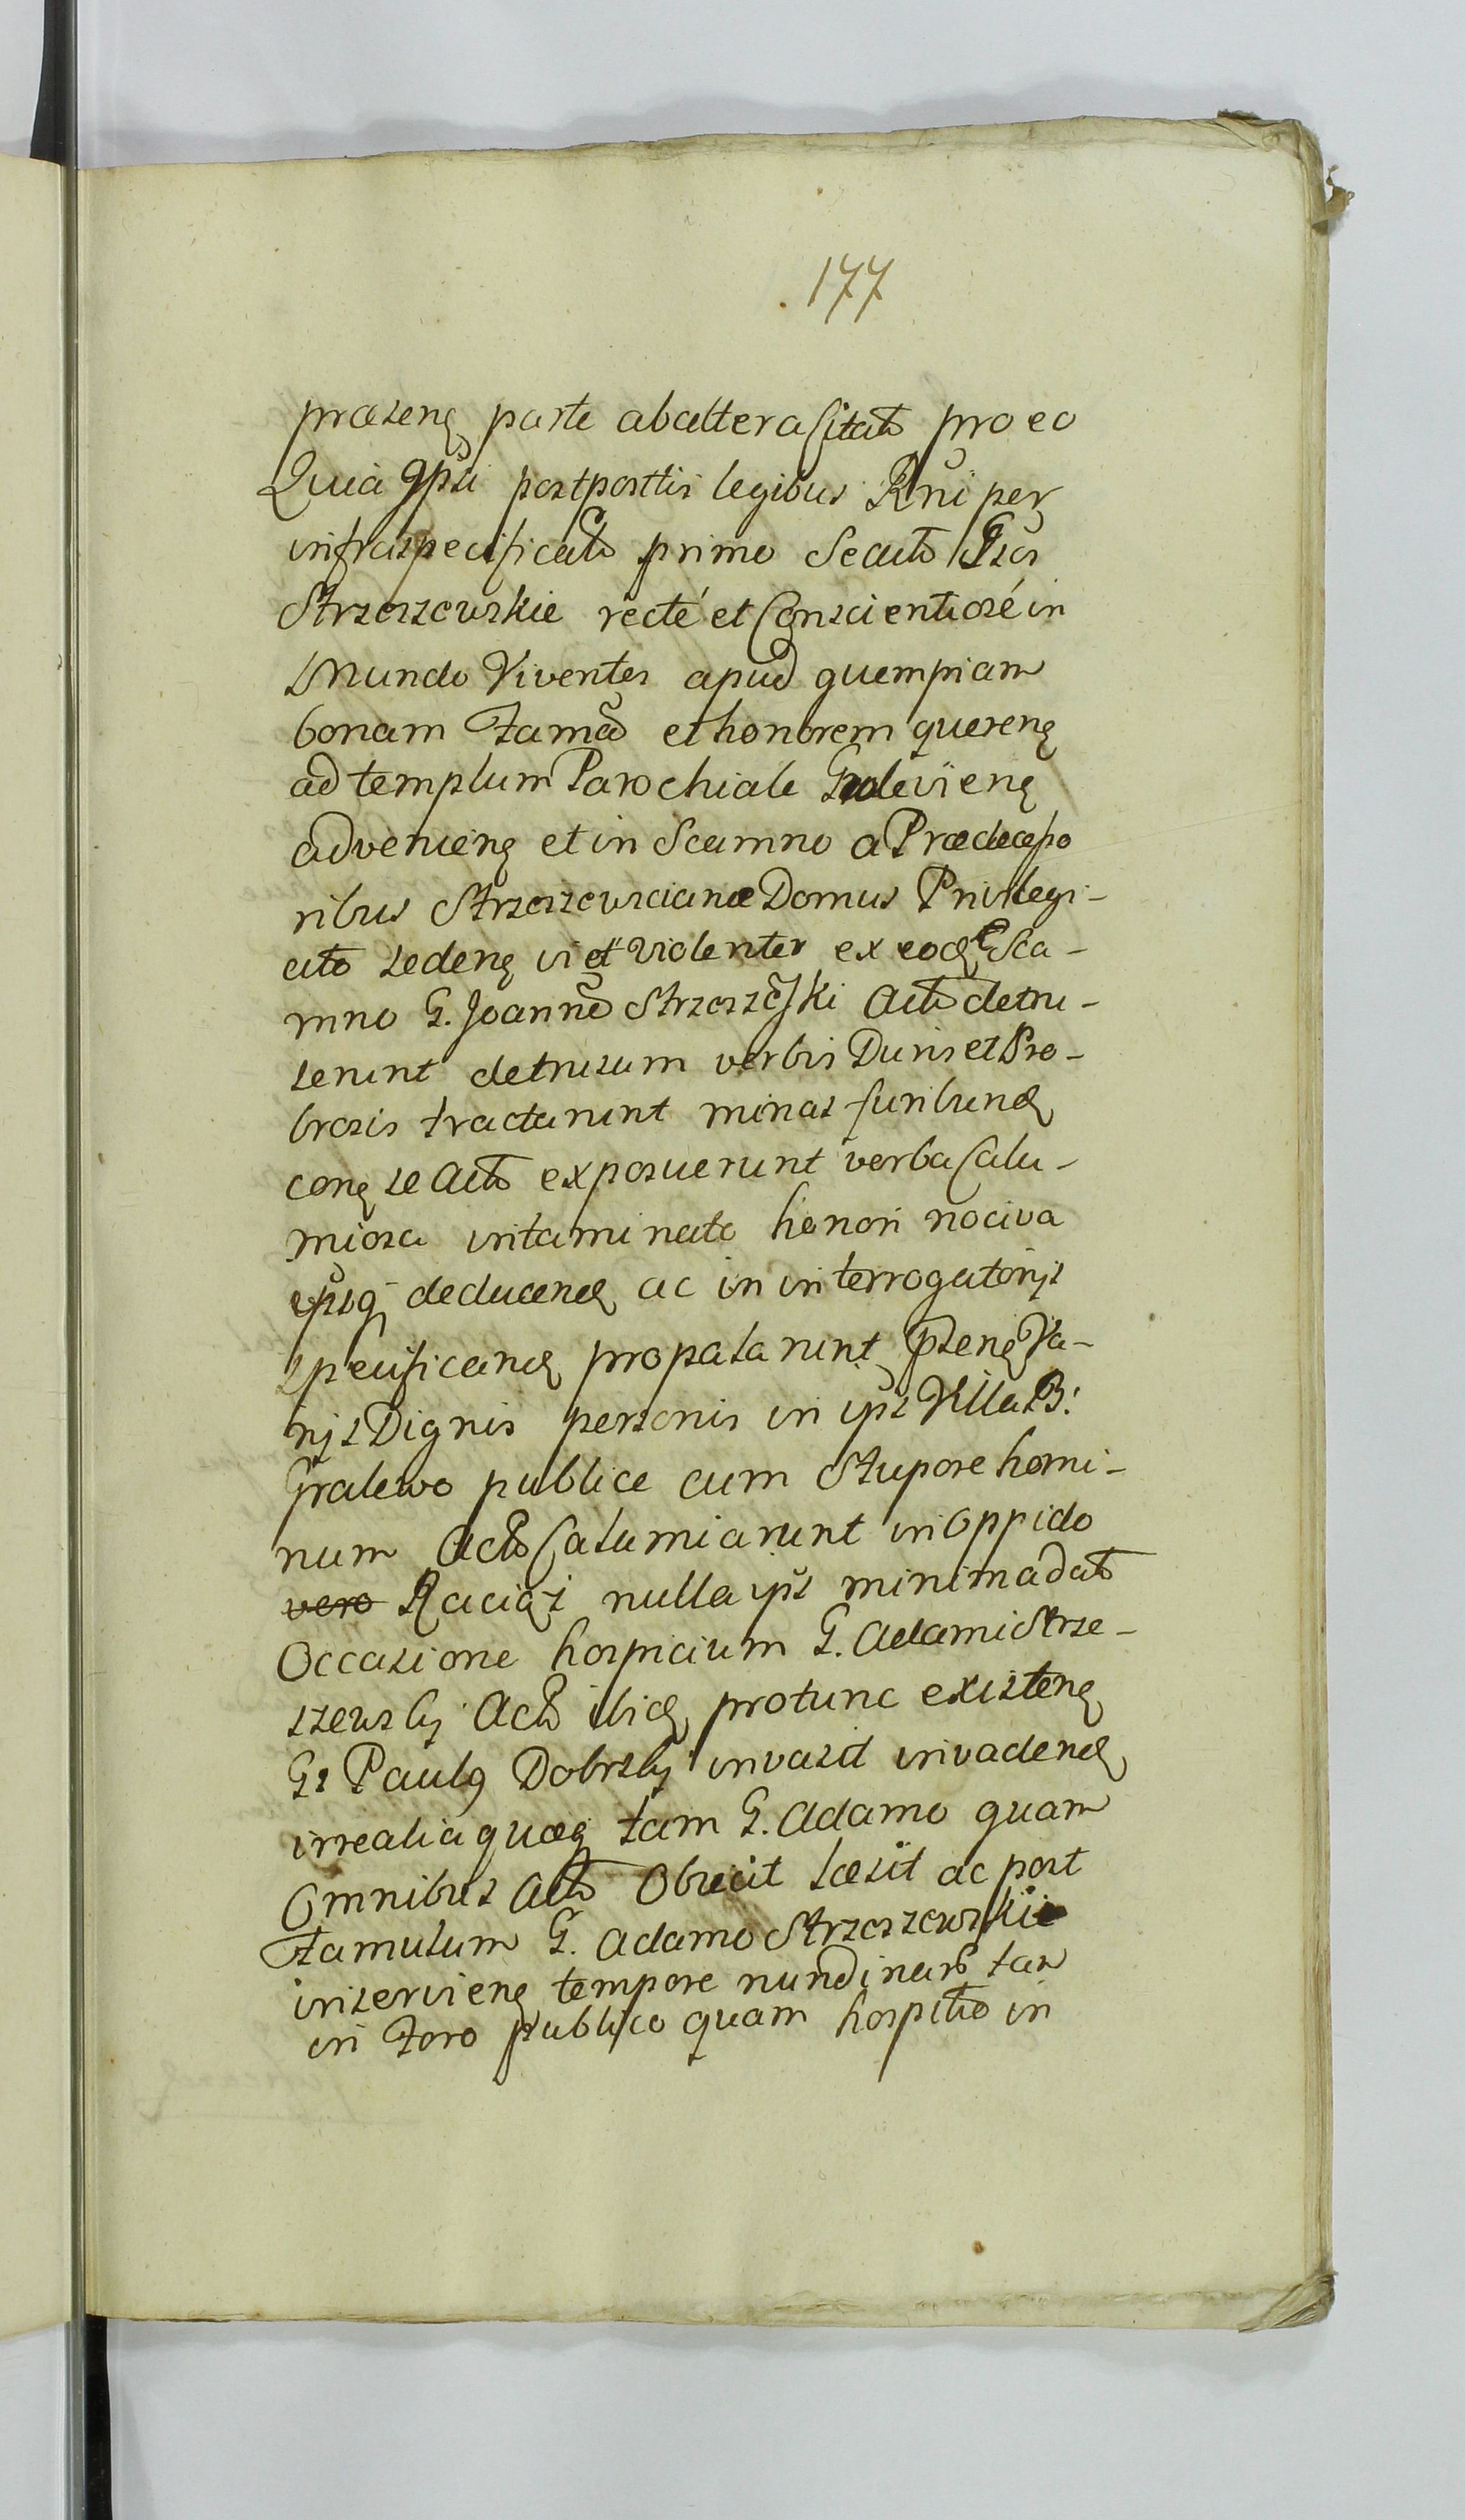 177
præsenꝫ parte ab altera Citatō pro eo
Quia ipsi postpositis legibus Rñi perꝫ
infraspecificatō primo Seatō Gsos
Strzeszewskie recté et Conscientiosé in
Mundo Viventes apud quempiam
bonam Famã et honorem querenꝫ
ad templum Parochiale Gralevienꝫ
advenienꝫ et in Scamno a Prædeceßo
ribus Strzeszewscianæ Domus Privilegi-
ato sedenꝫ vi et violenter ex eodꝫ Sca-
mno G. Joannẽ Strzeszewski Actō detru-
serunt detrusum verbis Duris et Pro-
brosis tractarunt minas furibundꝫ
conꝫ se Actō exposuerunt verba Calu-
miosa intaminato honori nociva
ipsoꝗ deducendꝫ ac in interrogatorijs
specificandꝫ propalarunt Cpsenꝫ Va-
rijs Dignis personis in ips Villa B:
Gralewo publice cum Stupore homi-
num Actō Calumiarunt in Oppido
vero Raciąż nulla ips minima datō
Occasione hospicium G. Adami Strze-
szewsky Actō ibidꝫ protunc existenꝫ
Gs Paulꝯ Dobrsky invasit invadendꝫ
irrealia quæꝗ tam G. Adamo quam
Omnibus Actō Obiecit læsit ac post
Famulum G. Adamo Strzeszewskie
inservienꝫ tempore nundinarũ tam
in Foro publico quam hospitio in